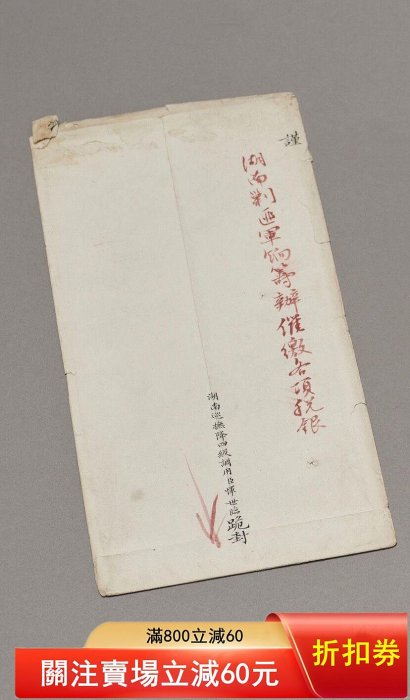 謹
湖南剿匪軍餉籌辦催繳各項税銀
湖南巡撫降四級調用臣惲世臨跪封
滿800立減60
關注賣場立減60元
折扣券